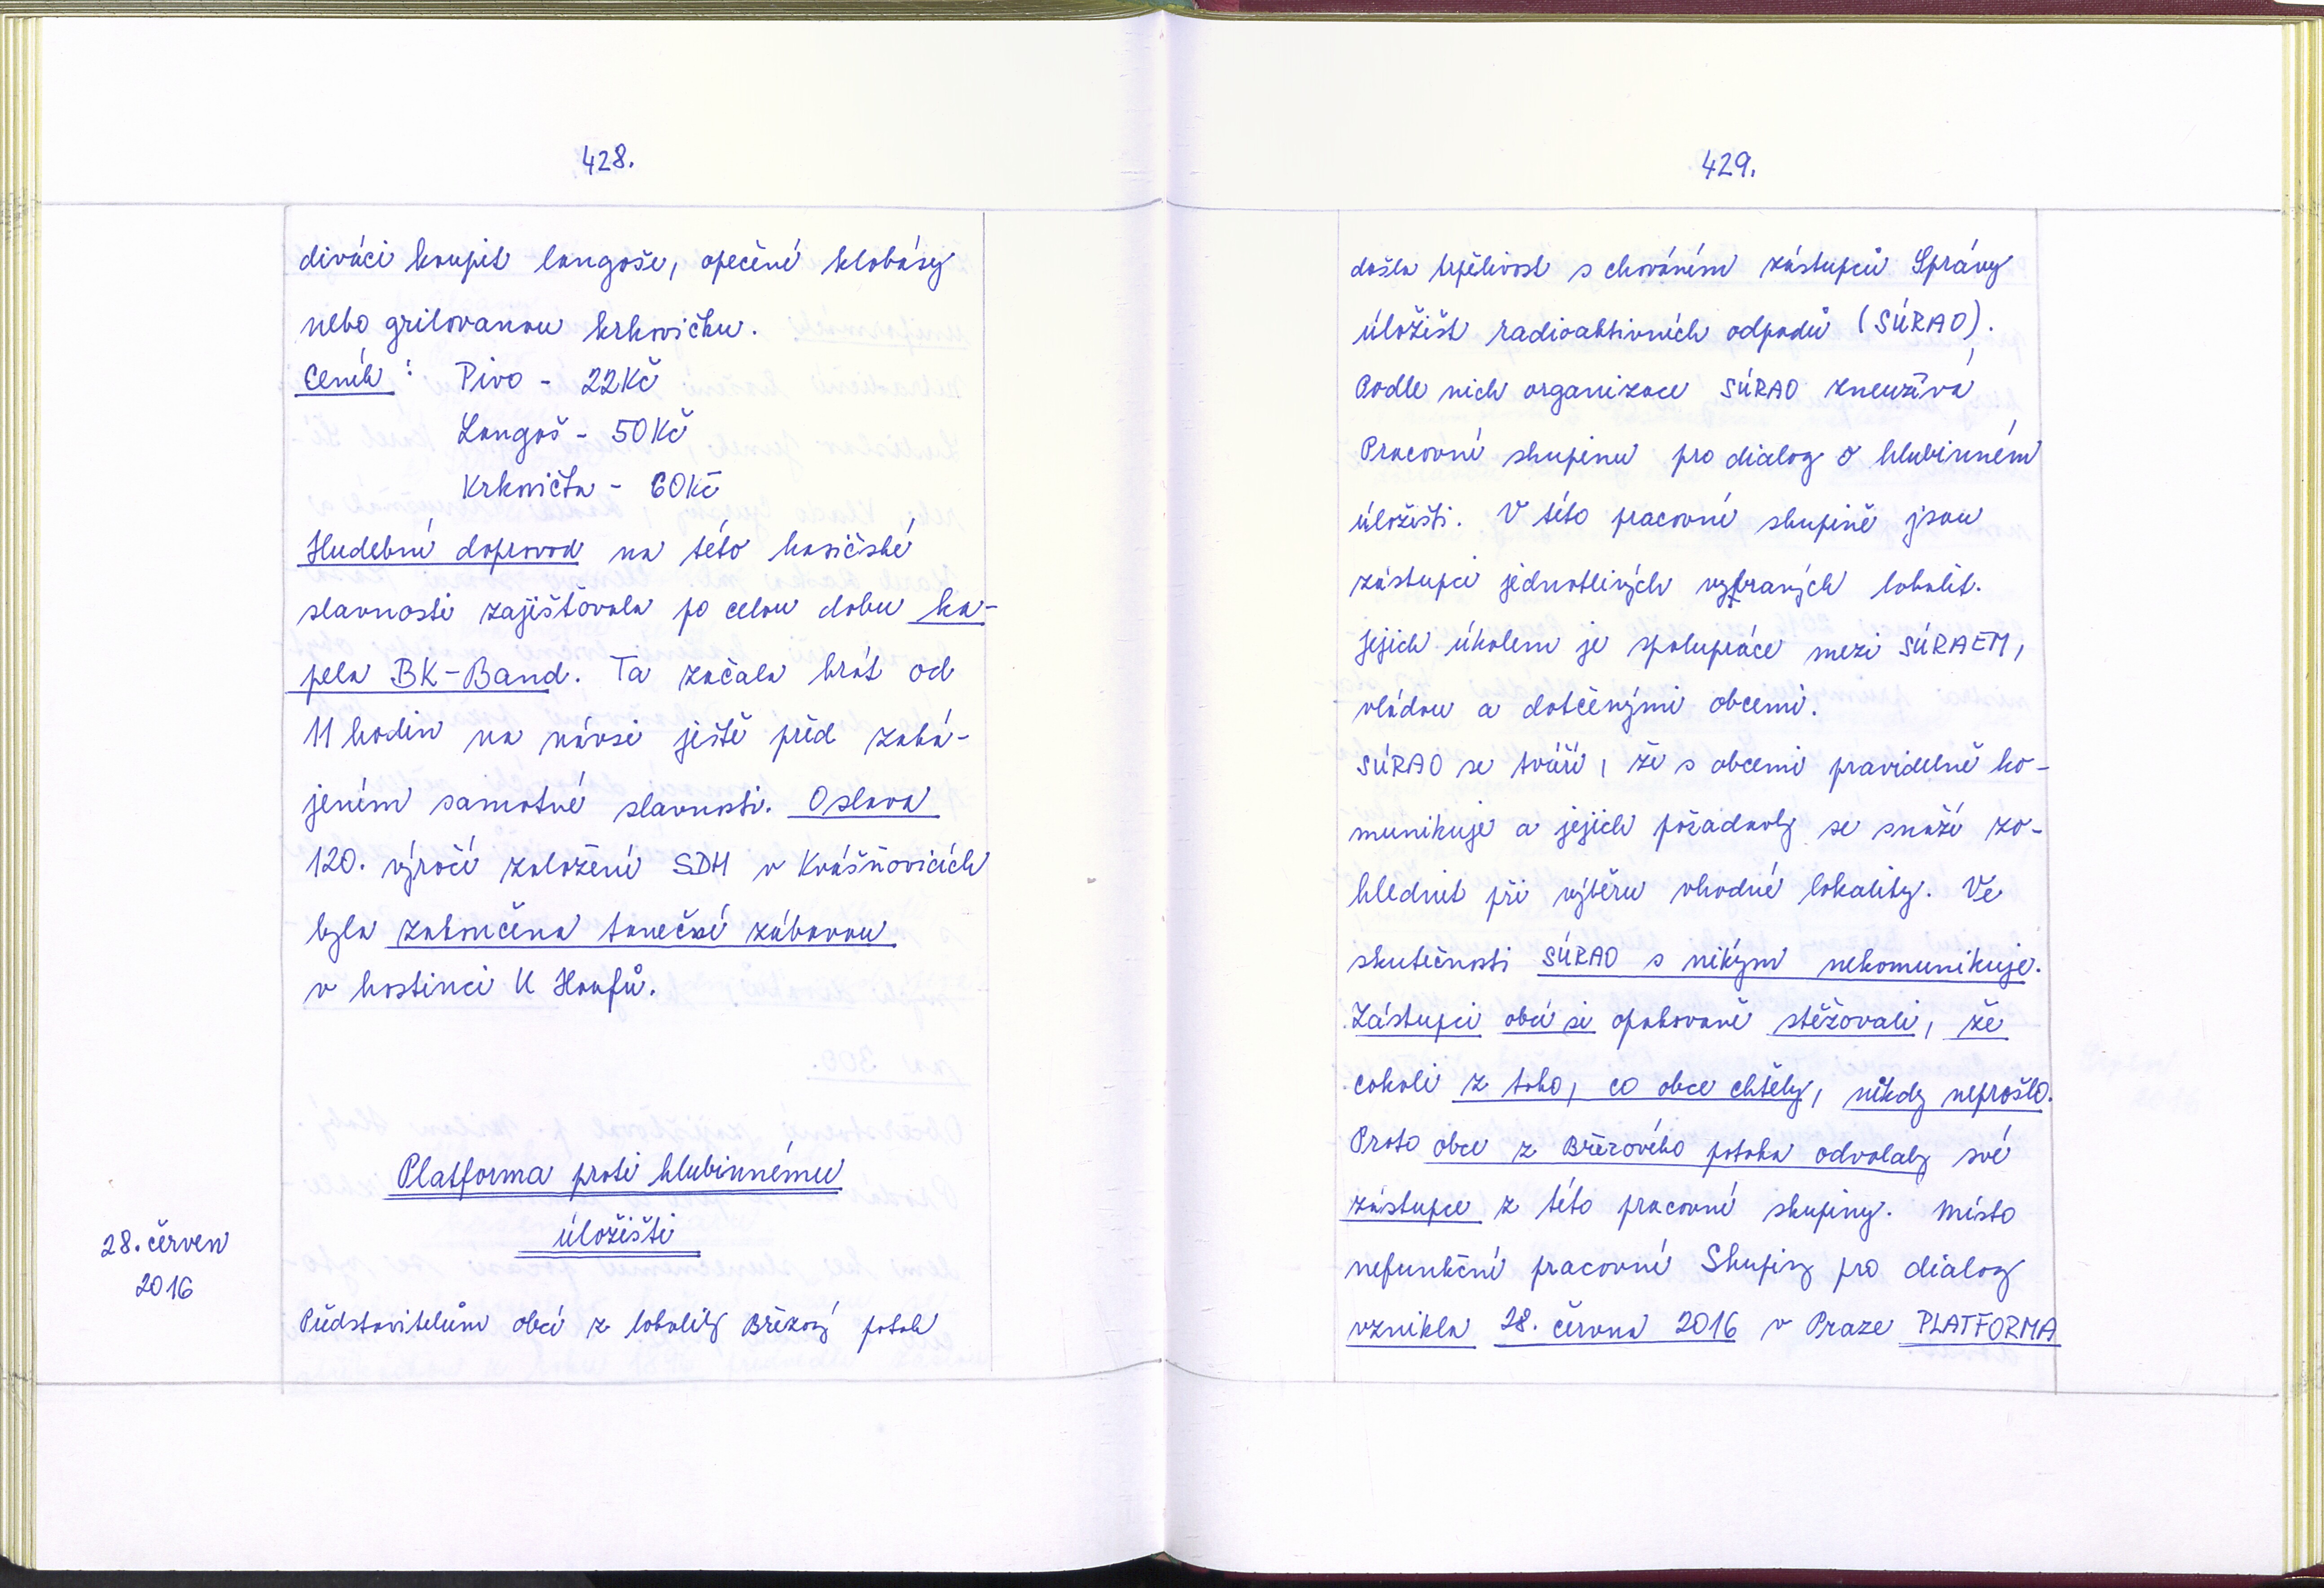 428.
diváci koupit langoše, opečené klobásy
nebo grilovanou krkovičku.
Ceník : Pivo - 22Kč
Langoš - 50Kč
Krkovička - 60Kč
Hudební doprovod na této hasičské
slavnosti zajišťovala po celou dobu ka-
pela BK-Band. Ta začala hrát od
11 hodin na návsi ještě před zahá-
jením samotné slavnosti. Oslava
120. výročí založení SDH v Kvášňovicích
byla zakončena taneční zábavou
v hostinci U Houfů.
Platforma proti hlubinnému
úložišti
28. červen
2016
Představitelům obcí z lokality Březový potok
429.
došla trpělivost s chováním zástupců Správy
úložišť radioaktivních odpadů (SÚRAO).
Podle nich organizace SÚRAO zneužívá
Pracovní skupinu pro dialog o hlubinném
úložišti. V této pracovní skupině jsou
zástupci jednotlivých vybraných lokalit.
Jejich úkolem je spolupráce mezi SÚRAEM,
vládou a dotčenými obcemi.
SÚRAO se tváří, že s obcemi pravidelně ko-
munikuje a jejich požadavky se snaží zo-
hlednit při výběru vhodné lokality. Ve
skutečnosti SÚRAO s nikým nekomunikuje.
Zástupci obcí si opakovaně stěžovali, že
cokoli z toho, co obce chtěly, nikdy neprošlo.
Proto obce z Březového potoka odvolaly své
zástupce z této pracovní skupiny. Místo
nefunkční pracovní Skupiny pro dialog
vznikla 28. června 2016 v Praze PLATFORMA